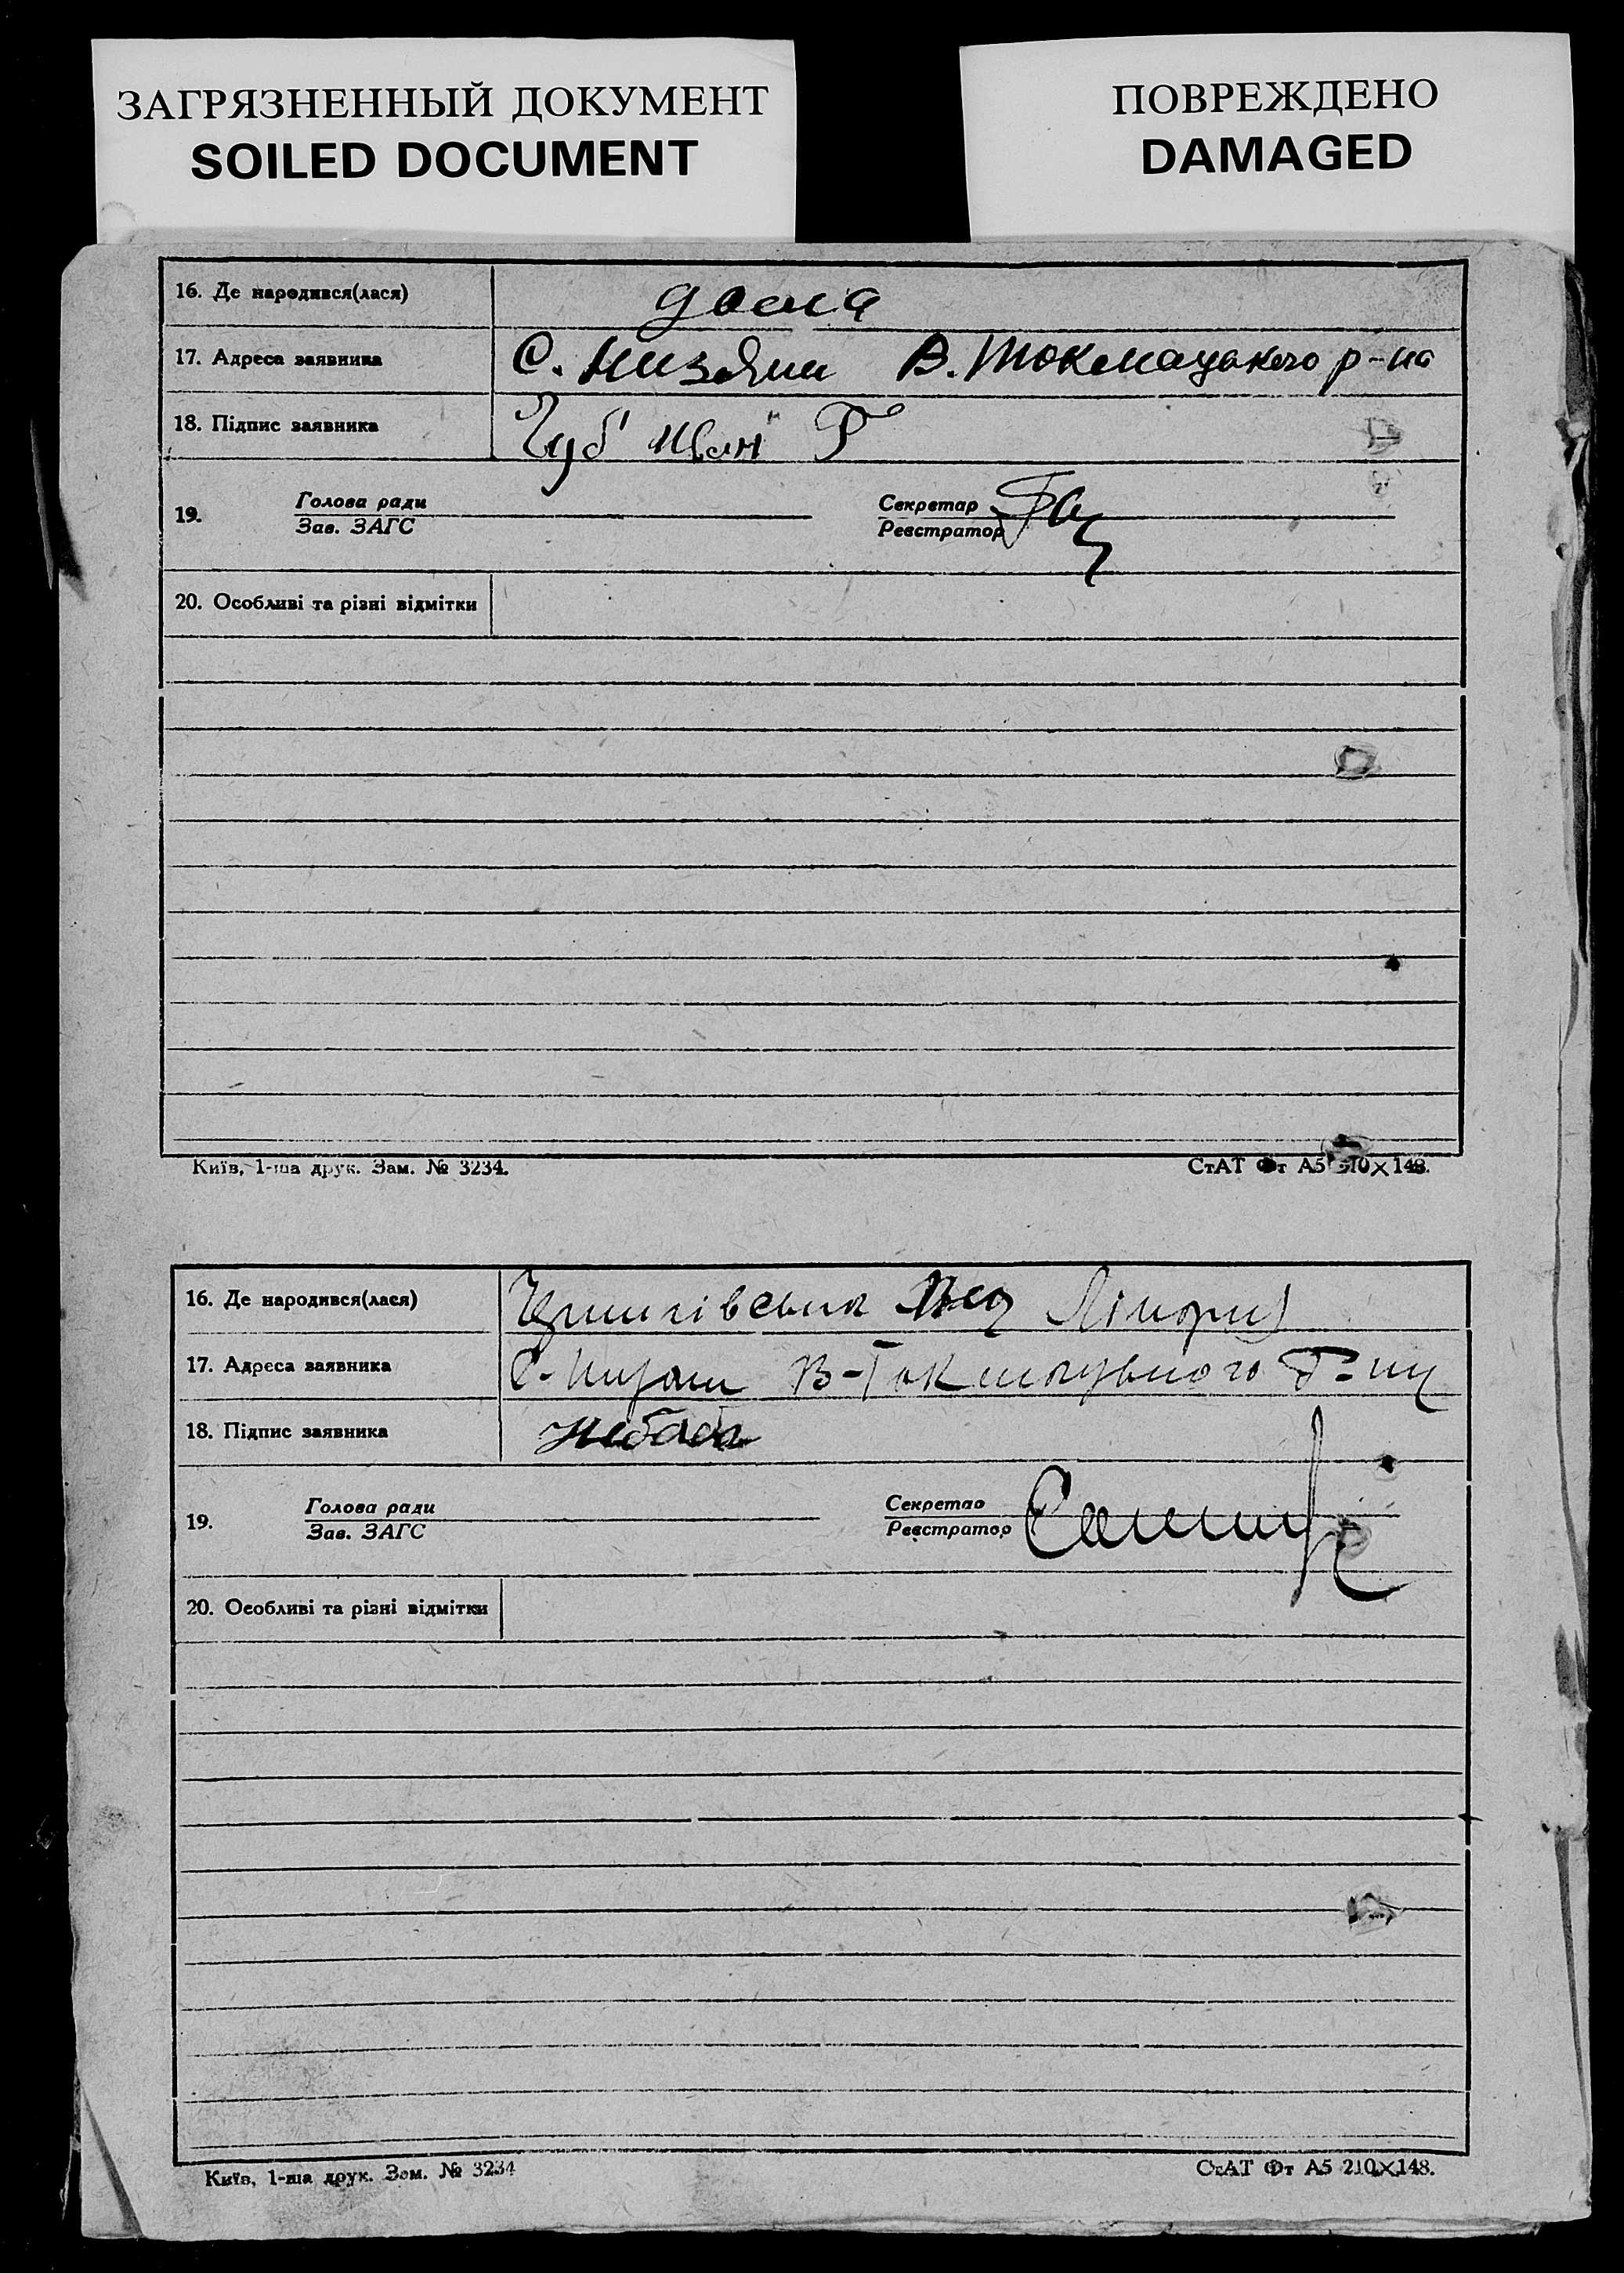 ЗАГРЯЗНЕННЫЙ ДОКУМЕНТ
SOILED DOCUMENT
ПОВРЕЖДЕНО
DAMAGED
16. Де народився(лася) дома
17. Адреса заявника С. Низяни В. Токмацького р-на
18. Підпис заявника Чуб Иван Г
19. Голова ради Секретар
Зав. ЗАГС Реєстратор
20. Особливі та різні відмітки
Київ, 1-ша друк. Зам. № 3234. СтАТ Фт А5 210×148.
16. Де народився(лася)
17. Адреса заявника С. В-Токмацького Р-ну
18. Підпис заявника
19. Голова ради Секретар
Зав. ЗАГС Реєстратор
20. Особливі та різні відмітки
Київ, 1-ша друк. Зам. № 3234 СтАТ Фт А5 210×148.